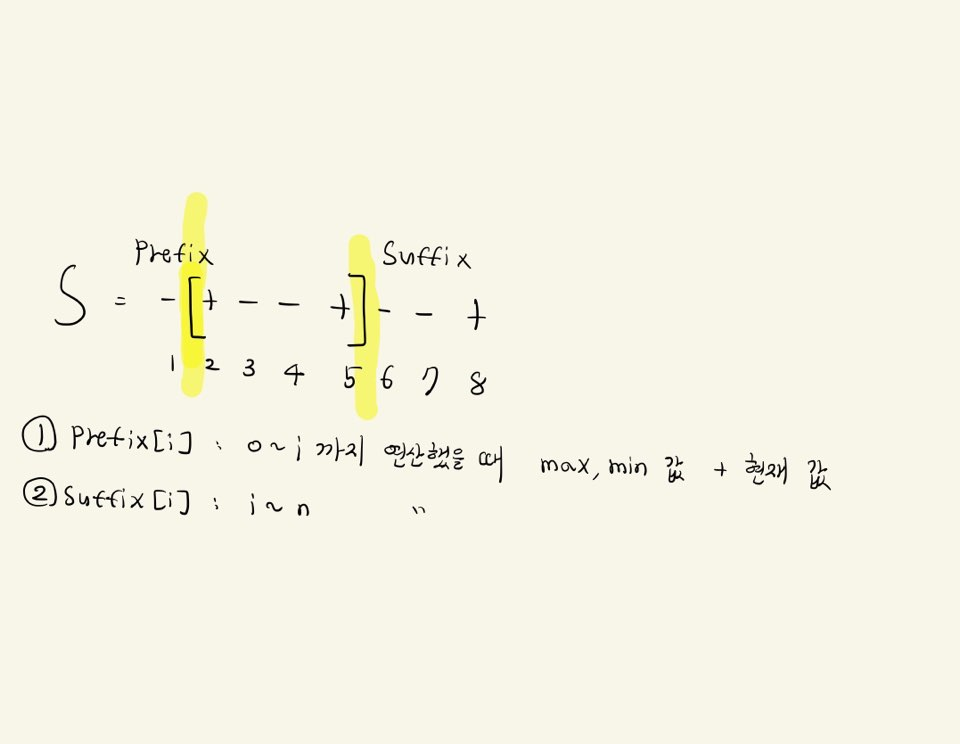 Prefix Suffix
S = - [ + - - + ] - - +
1 2 3 4 5 6 7 8
① Prefix[i] : 0 ~ i 까지 연산했을 때 max, min 값 + 현재 값
② Suffix[i] : i ~ n "